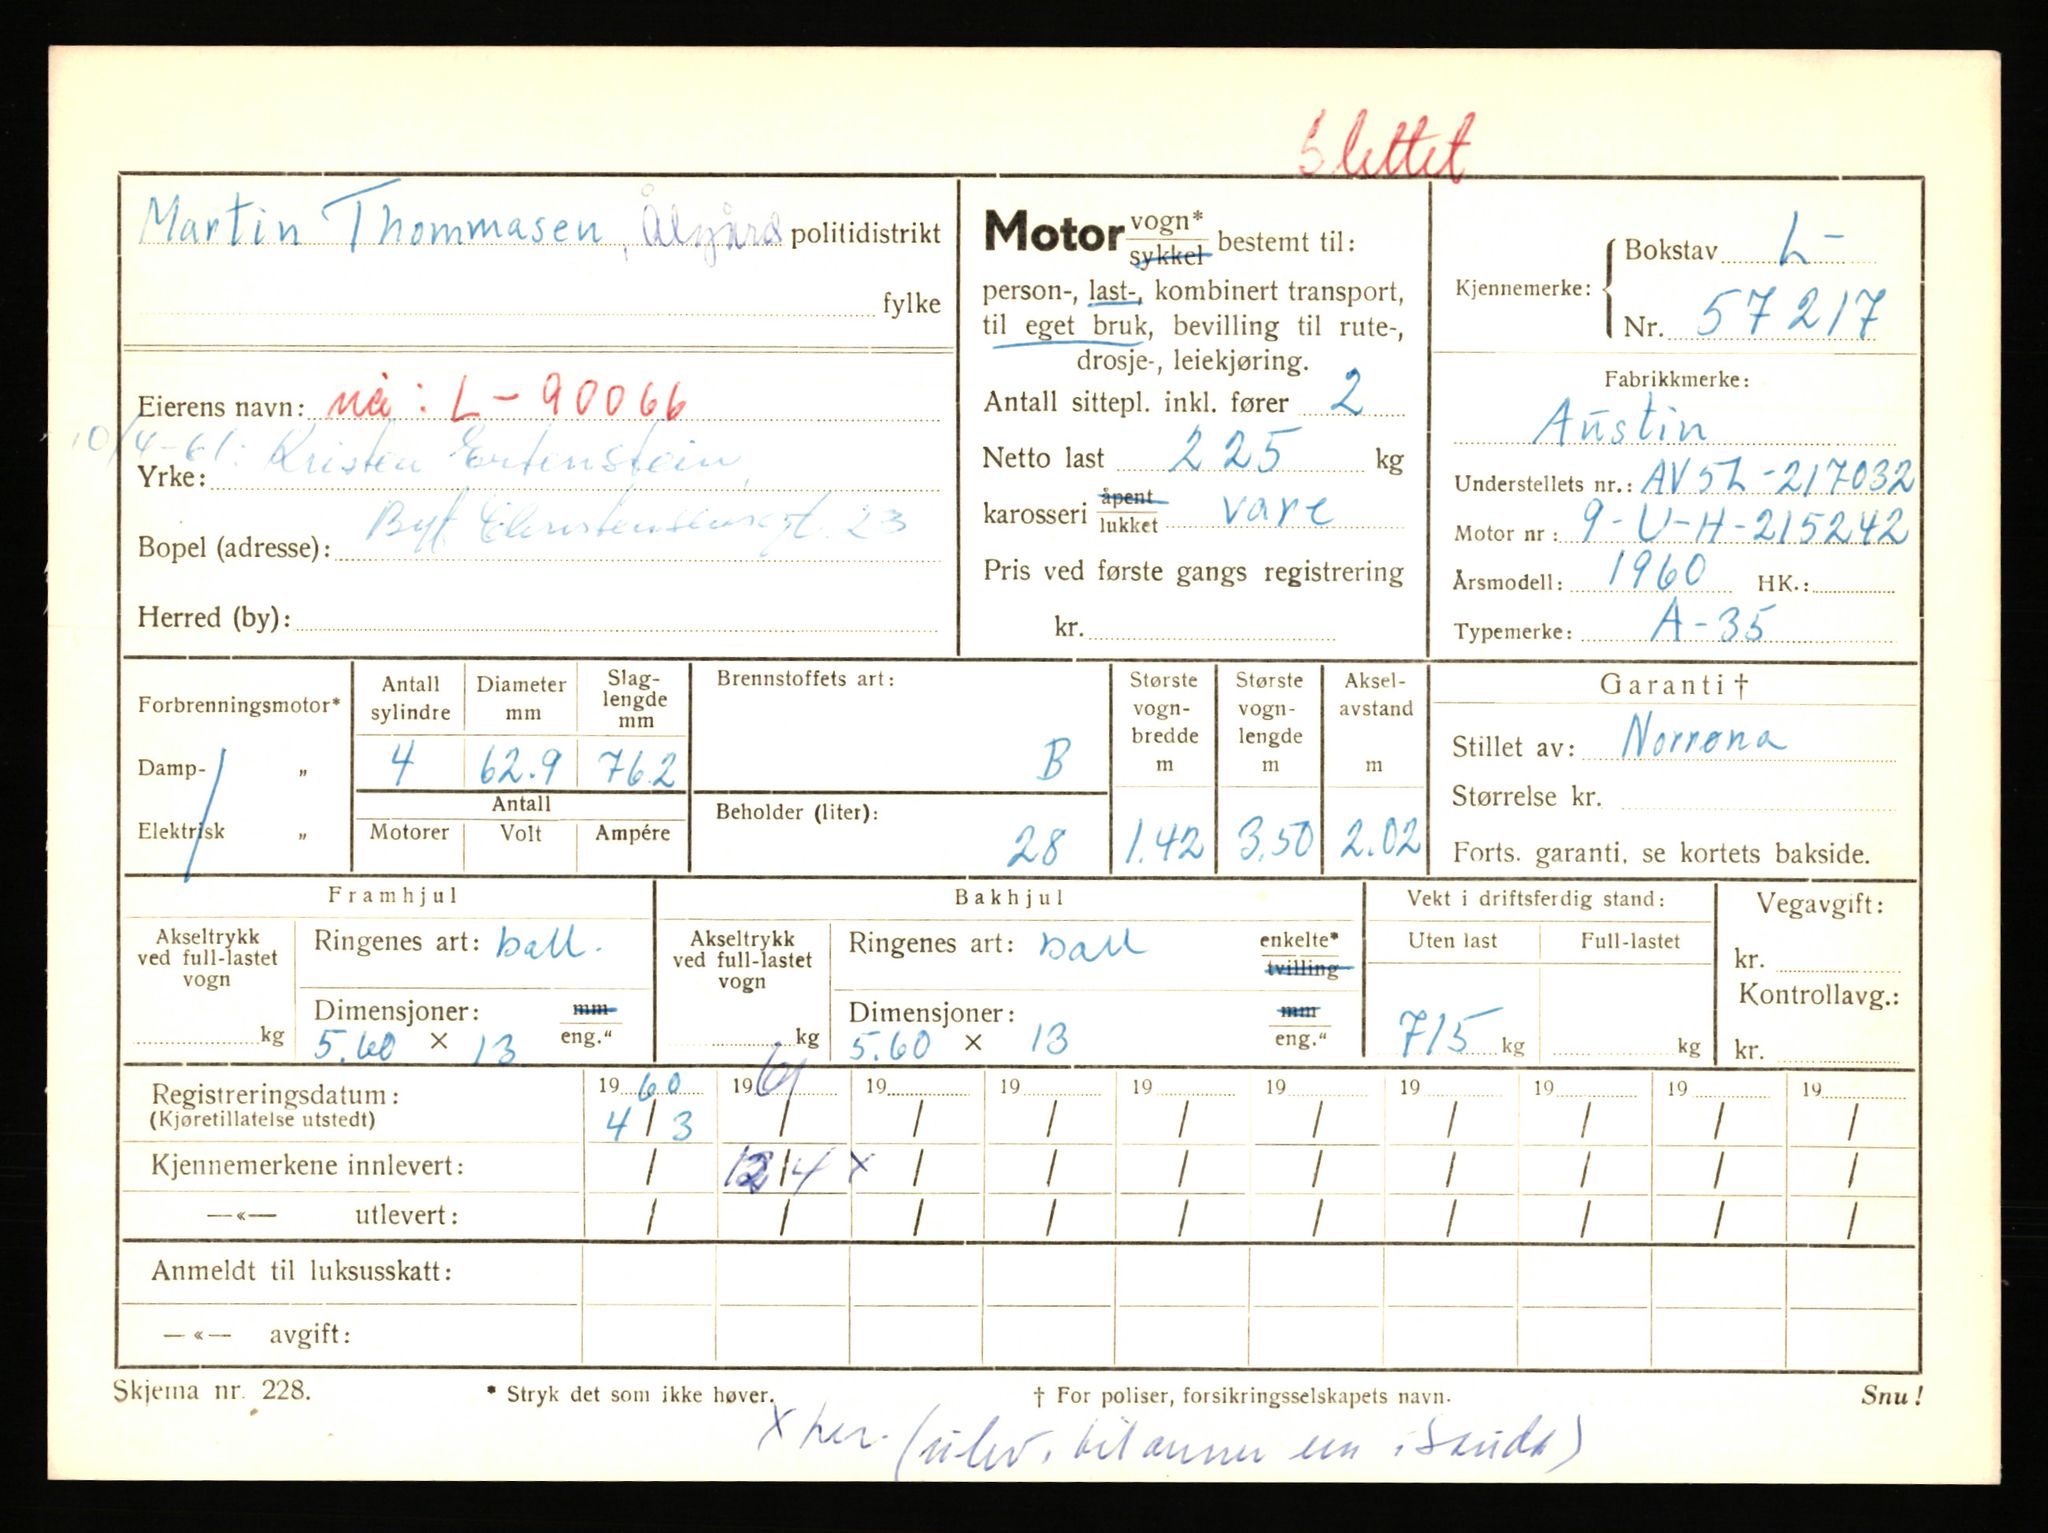 Slettet
Martin Thommasen, Ålgård politidistrikt
fylke
Eierens navn: nå: L-90066
10/4-61: Kristen Ertenstein,
Yrke:
Byf. gt. 23
Bopel (adresse):
Herred (by):
Motor vogn* sykkel bestemt til:
person-, last-, kombinert transport,
til eget bruk, bevilling til rute-,
drosje-, leiekjøring.
Antall sittepl. inkl. fører 2
Netto last 225 kg
karosseri åpent lukket vare
Pris ved første gangs registrering
kr.
Kjennemerke: Bokstav L-
Nr. 57217
Fabrikkmerke:
Austin
Understellets nr.: AV5L-217032
Motor nr: 9-U-H-215242
Årsmodell: 1960 HK.:
Typemerke: A-35
Forbrenningsmotor*
Damp- „
Elektrisk „
Antall sylindre Diameter mm Slaglengde mm
4 62.9 76.2
Antall
Motorer Volt Ampére
Brennstoffets art:
B
Beholder (liter):
28
Største vognbredde m Største vognlengde m Akselavstand m
1.42 3.50 2.02
Garanti †
Stillet av: Norrøna
Størrelse kr.
Forts. garanti, se kortets bakside.
Framhjul
Akseltrykk ved full-lastet vogn kg
Ringenes art: ball.
Dimensjoner: mm eng."
5.60 × 13
Bakhjul
Akseltrykk ved full-lastet vogn kg
Ringenes art: ball enkelte* tvilling
Dimensjoner: mm eng."
5.60 × 13
Vekt i driftsferdig stand:
Uten last Full-lastet
715 kg kg
Vegavgift:
kr.
Kontrollavg.:
kr.
Registreringsdatum: 1960 1961 19 19 19 19 19 19 19 19
(Kjøretillatelse utstedt) 4/3 / / / / / / / / /
Kjennemerkene innlevert: / 12/4 x / / / / / / / /
—«— utlevert: / / / / / / / / / /
Anmeldt til luksusskatt:
—«— avgift:
Skjema nr. 228. * Stryk det som ikke høver. † For poliser, forsikringsselskapets navn. Snu!
x her. (utlev. til annen i Sauda)